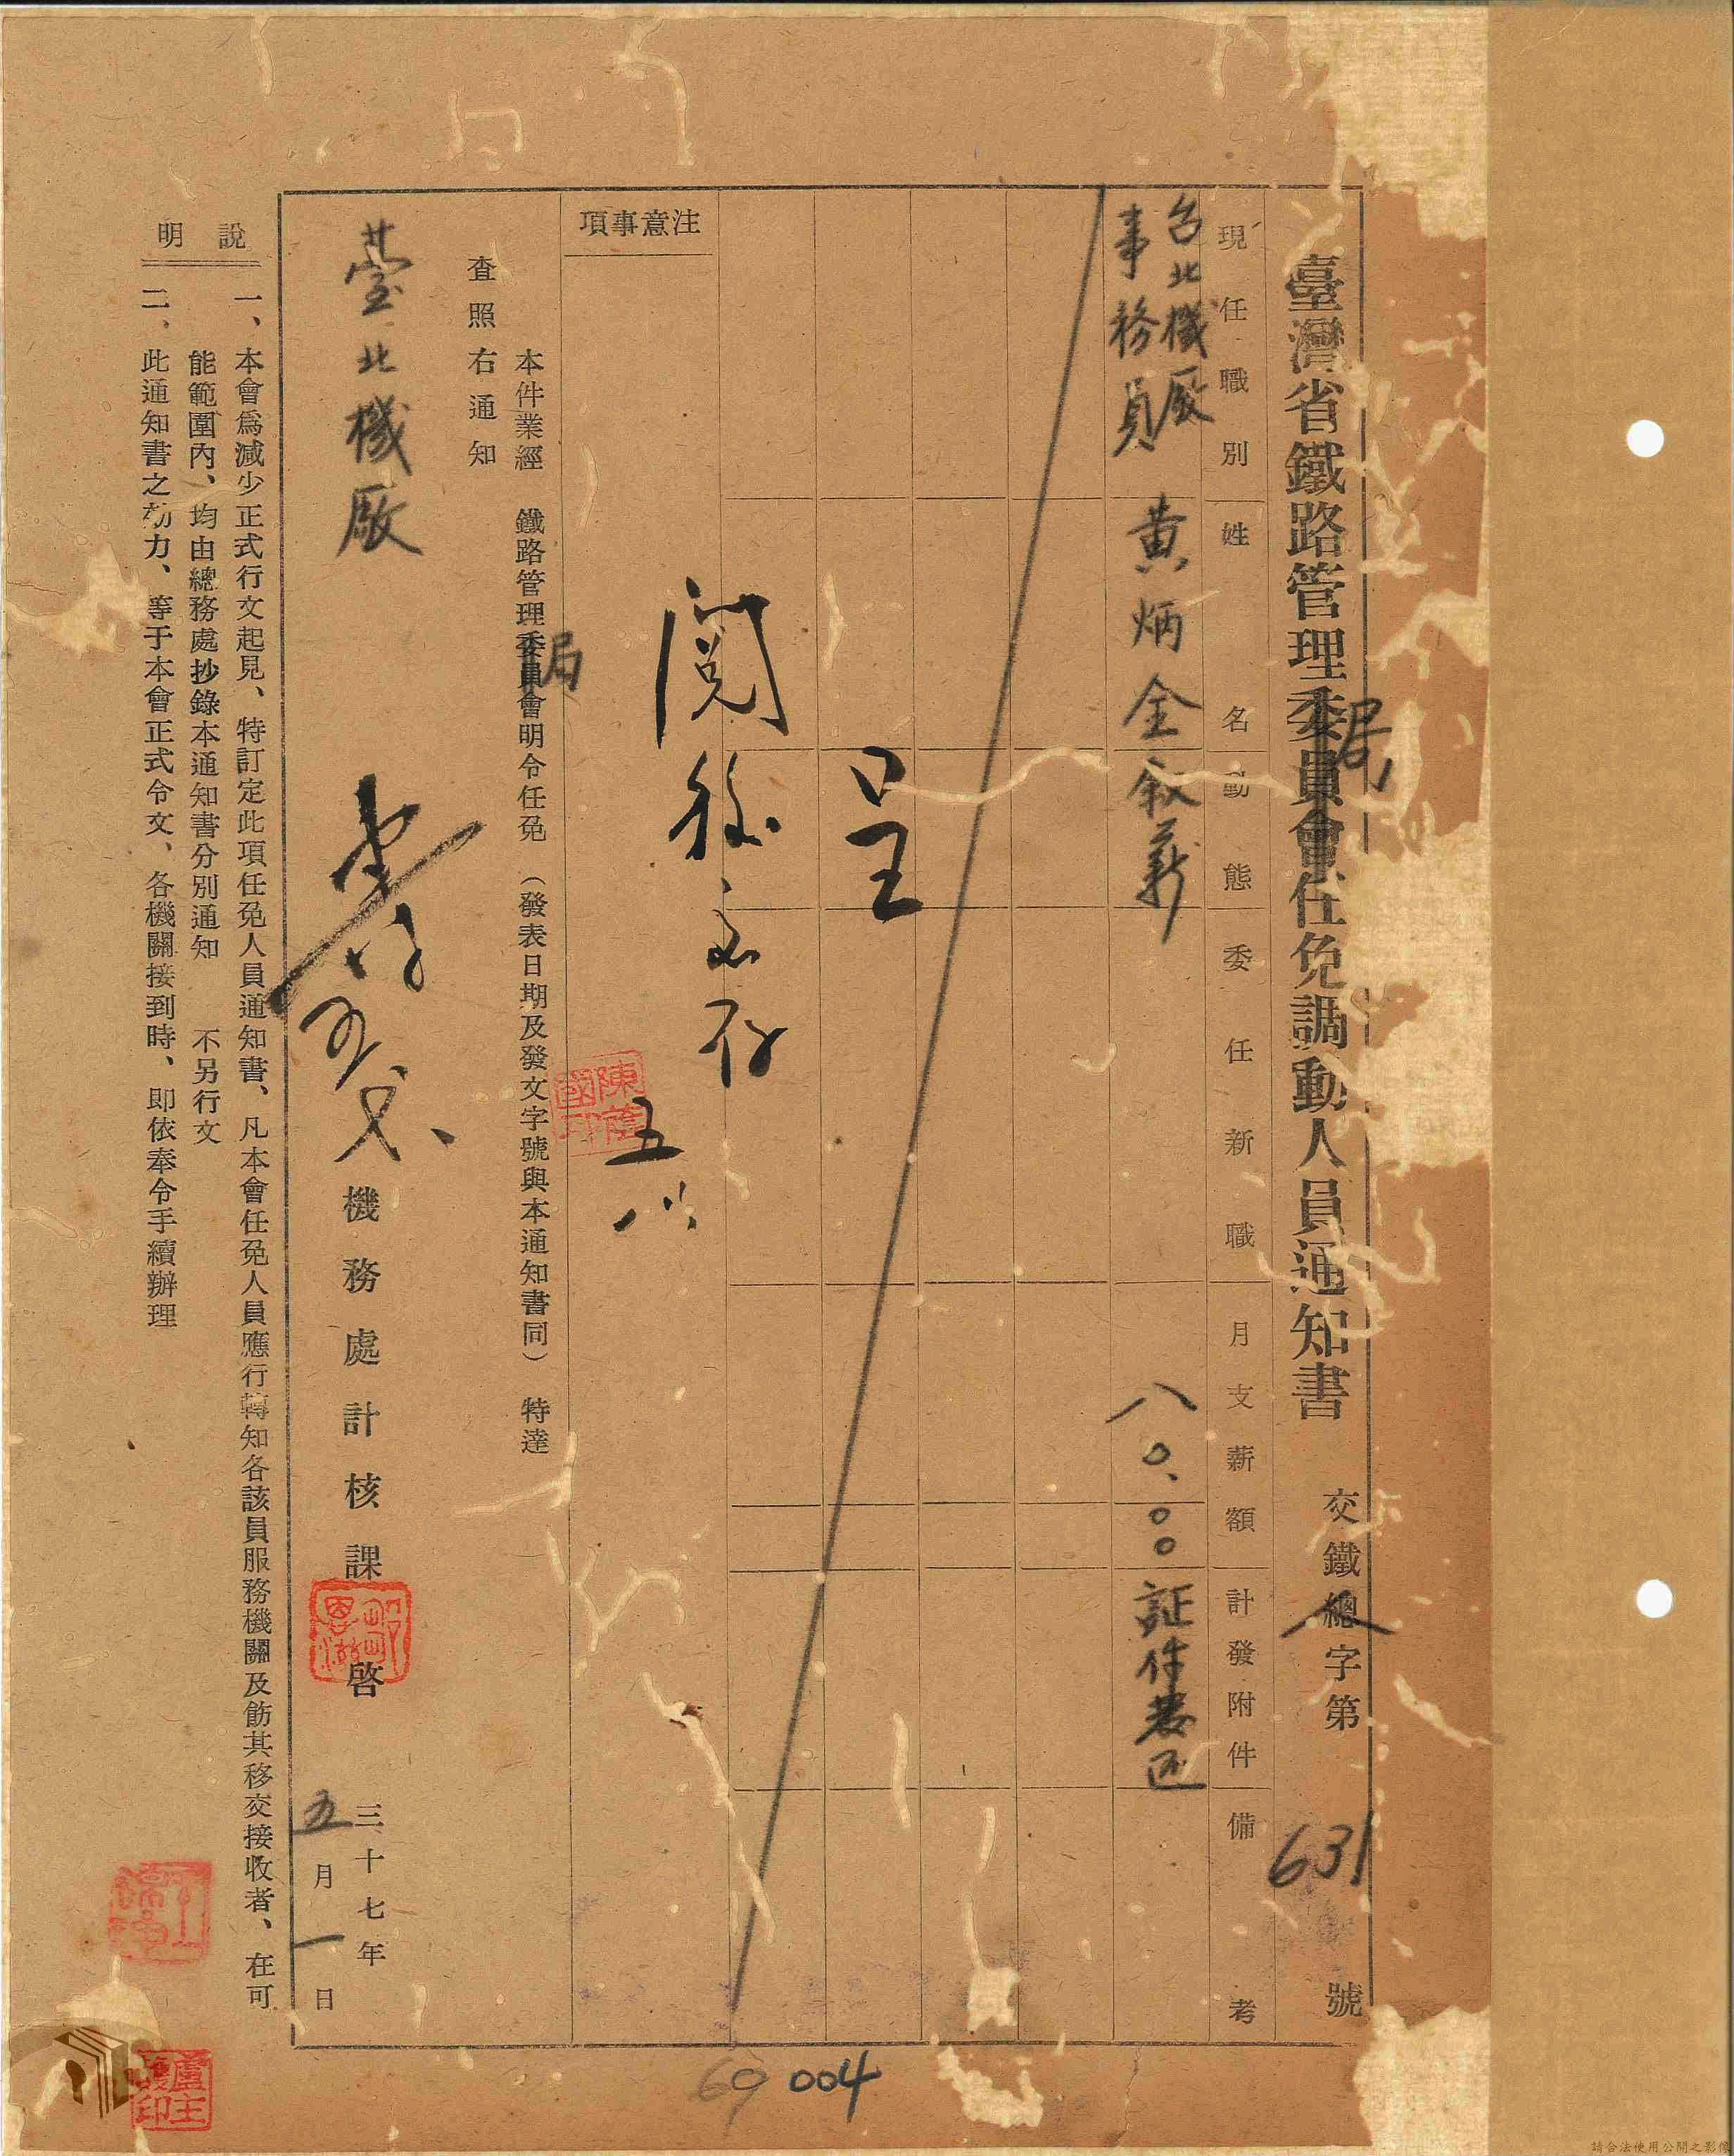 臺灣省鐵路管理委員會任免調動人員通知書
局
交鐵總字第 631 號
人
現任職別
姓名
動態
委任新職
月支薪額
計發附件
備考
台北機廠
事務員
黃炳金
叙薪
八〇.〇〇
証件叁匹
呈
閱後文存
五
八
注意事項
本件業經 鐵路管理委員會明令任免(發表日期及發文字號與本通知書同) 特達
局
查照右通知
臺北機廠
機務處計核課啓
三十七年
五月一日
說明
一、本會爲減少正式行文起見、特訂定此項任免人員通知書、凡本會任免人員應行轉知各該員服務機關及飭其移交接收者、在可
能範圍內、均由總務處抄錄本通知書分別通知 不另行文
二、此通知書之効力、等于本會正式令文、各機關接到時、即依奉令手續辦理
69 004
請合法使用公開之影像